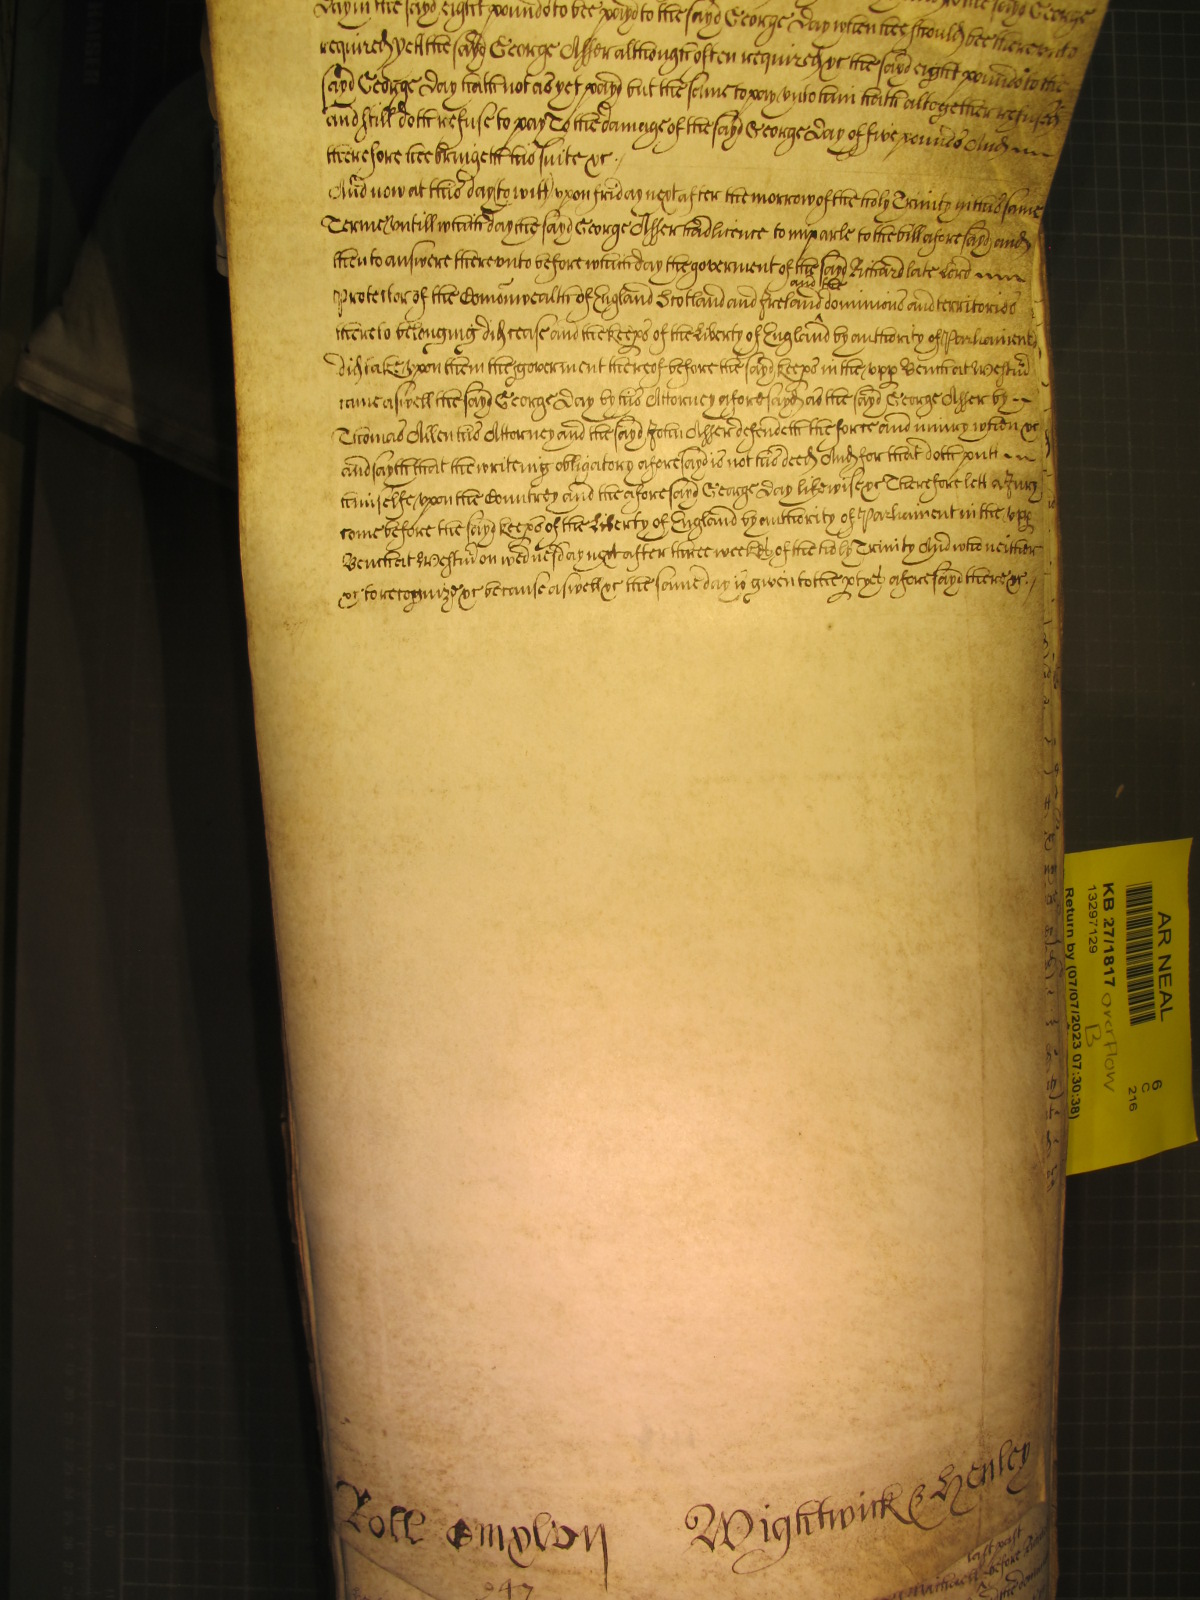 Day in the sayd eight pounds to bee payd to the sayd George Day when hee should bee thereunto
required yett the sayd George Asser although often required &c the sayd eight pounds to the
sayd George Day hath not as yet payd but the same to pay unto him hath altogether refused
and still doth refuse to pay To the damage of the sayd George Day of five pounds And
therefore hee bringeth his suite &c
And now at this day to witt upon friday next after the morrow of the holy Trinity in this same
Terme untill which day the sayd George Asser had licence to imparle to the bill aforesayd and
then to answere thereunto before which day the goverment of the sayd Richard late Lord
Protector of the Comonwealth of England Scotland and Ireland and the dominions and territories
thereto belonging did cease and the keeps of the Liberty of England by authority of Parliament
did take upon them the goverment thereof before the sayd keeps in the upp Bench at Westm
came aswell the sayd George Day by his Attorney aforesayd as the sayd George Asser by
Thomas Allen his Attorney and the sayd John Asser defendeth the force and iniury when &c
and sayth that the writeing obligatory aforesayd is not his deed And for that doth putt
himselfe upon the Countrey and the aforesayd George Day likewise &c Therefore lett a Jury
come before the sayd keeps of the Liberty of England by authority of Parliament in the upp
Bench at Westm on wednesday next after three weekes of the holy Trinity And who neither
&c to recognize &c because aswell &c the same day is given to the ptyes aforesayd there &c
AR NEAL
6
C
216
KB 27/1817 overflow
B
13297129
Return by (07/07/2023 07:30:38)
Roll
Wightwick & Henley
last past
before